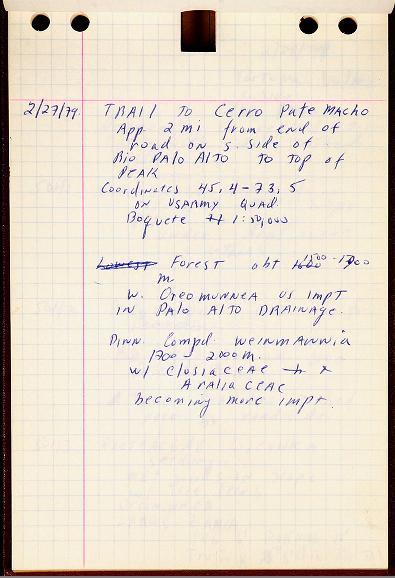 2/27/79. TRAIL TO Cerro Pate MACHO
App 2 mi from end of
road on S. side of
Rio PALO ALTO TO TOP of
PEAK
Coordinates 45,4-73,5
ON USARMY QUAD
Boquete 1:50,000
Lowest FOREST abt 1500-1700
m
W. Oreomunnea as impt
IN PALO ALTO DRAINAGE.
Pinn. Compd. WEINMANNIA
1700-2000 m.
w/ ClusiaCEAE +
AraliaCEAE
becoming more impt.